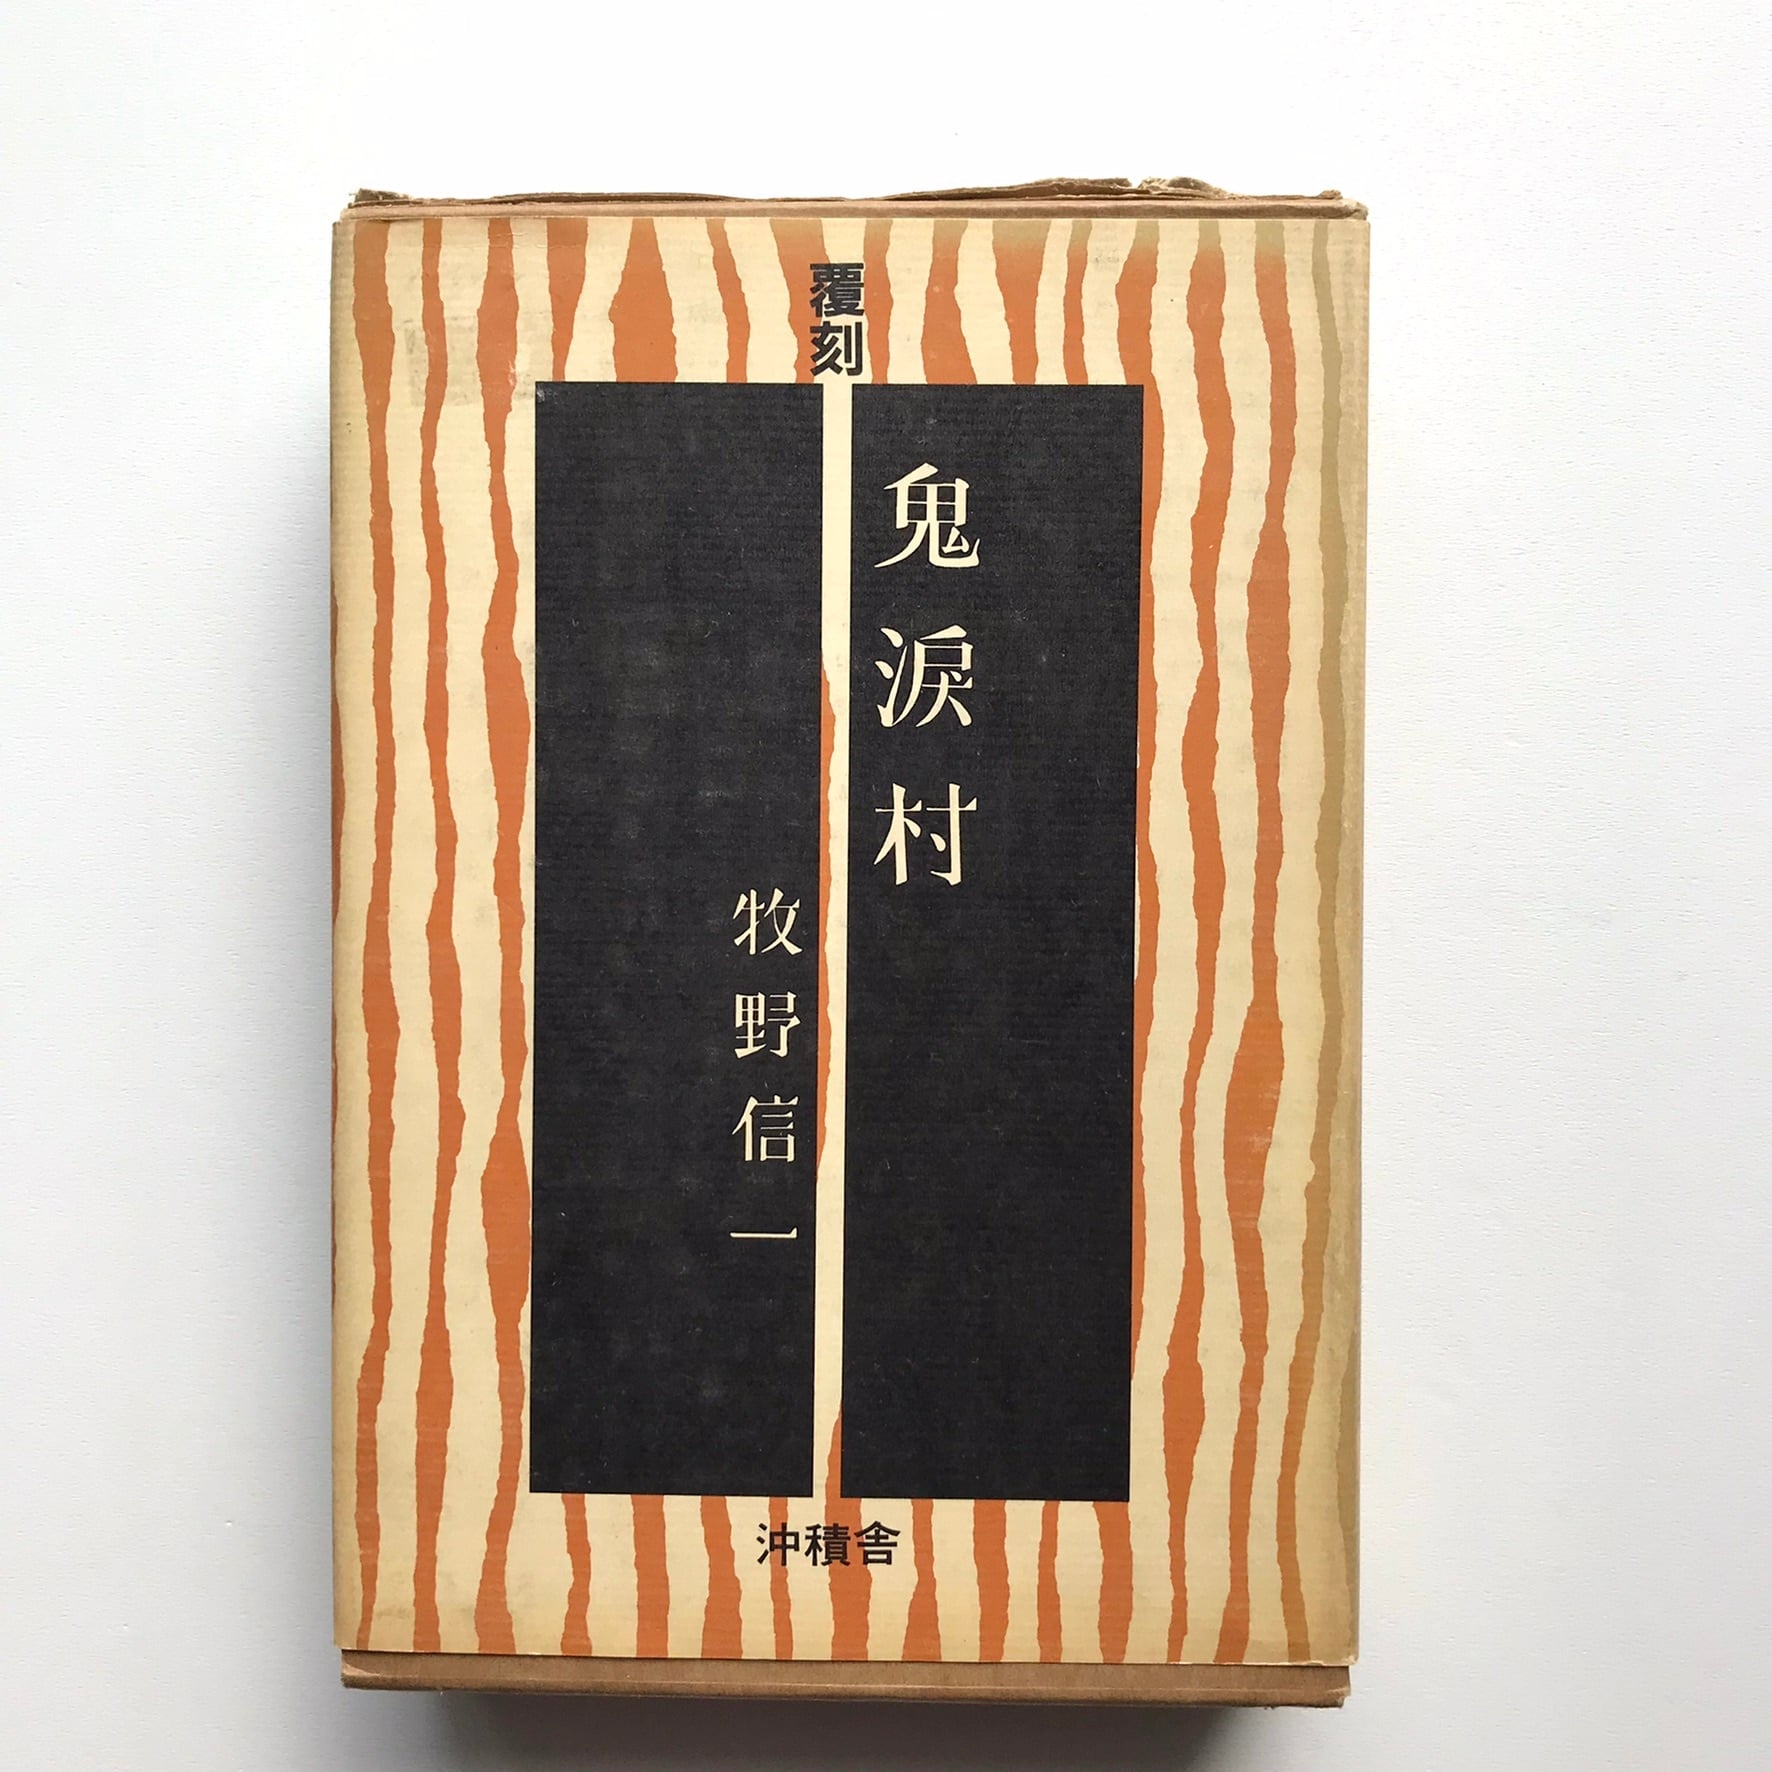 覆刻
鬼涙村
牧野信一
沖積舎